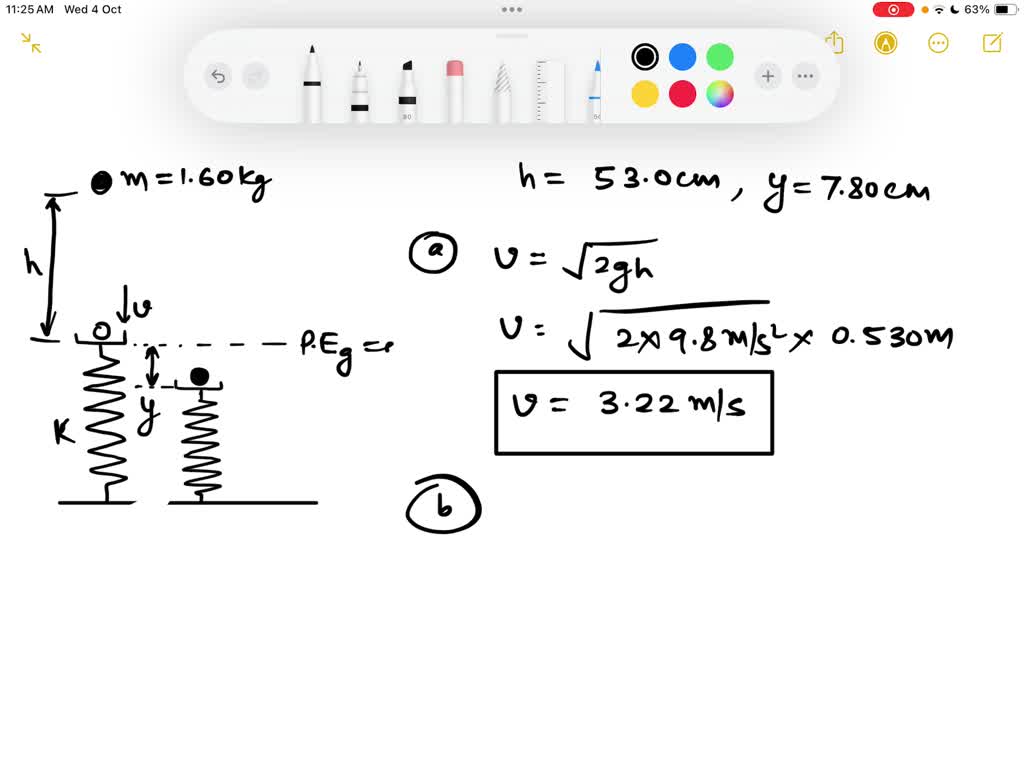 11:25 AM Wed 4 Oct
63%
80
50
m = 1.60kg
h = 53.0cm, y = 7.80cm
h
a
v = √2gh
v
P.Eg =
v = √2×9.8m/s²× 0.530m
y
K
v = 3.22 m/s
b